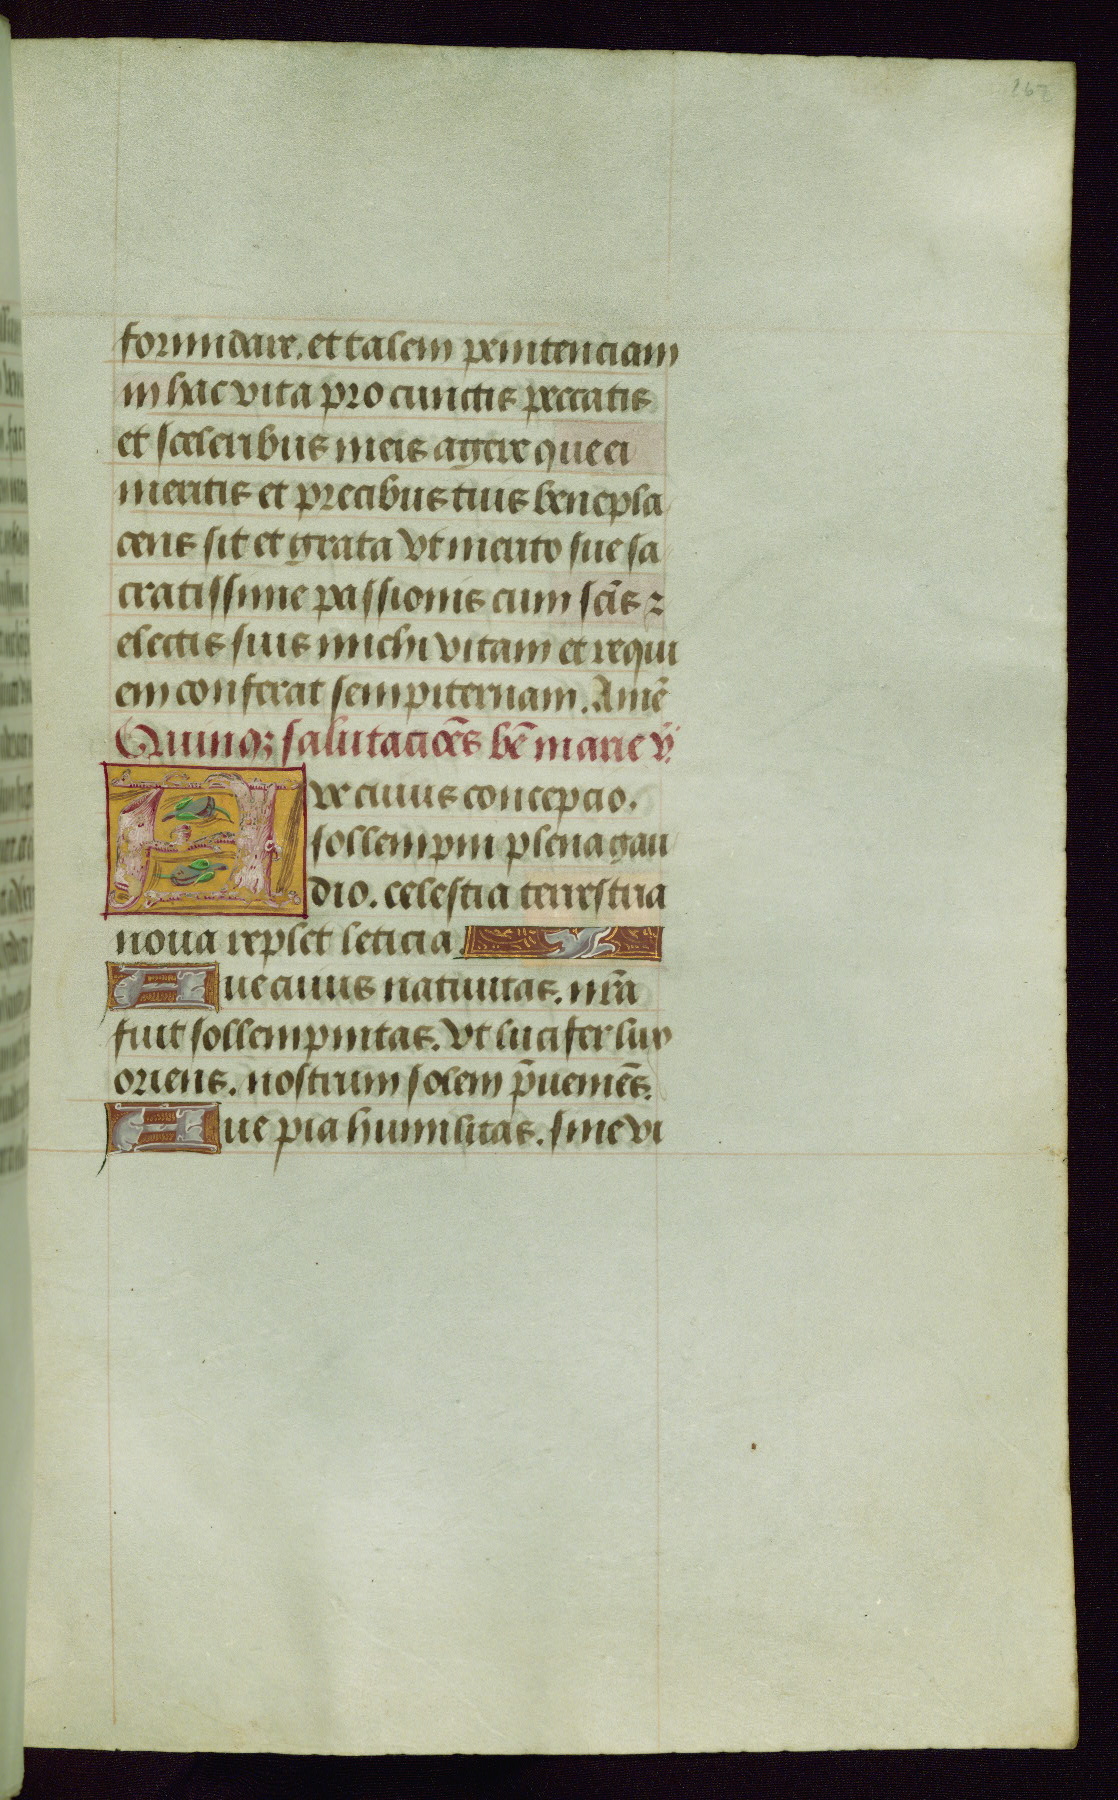 262
formidare. et talem penitenciam
in hac vita pro cunctis peccatis
et sceleribus meis agere que ei
meritis et precibus tuis benepla
cens sit et grata vt merito sue sa
cratissime passionis cum sc̄is ⁊
electis suis michi vitam et requi
em conferat sempiternam. Amē
Quinqꝫ salutacōēs bē marie v̄.
Ave cuius concepcio.
sollempni plena gau
dio. celestia terrestria
noua replet leticia.
Aue cuius natiuitas. nr̄a
fuit sollempnitas. vt lucifer lux
oriens. nostrum solem p̄ueniēs.
Aue pia humilitas. sine vi